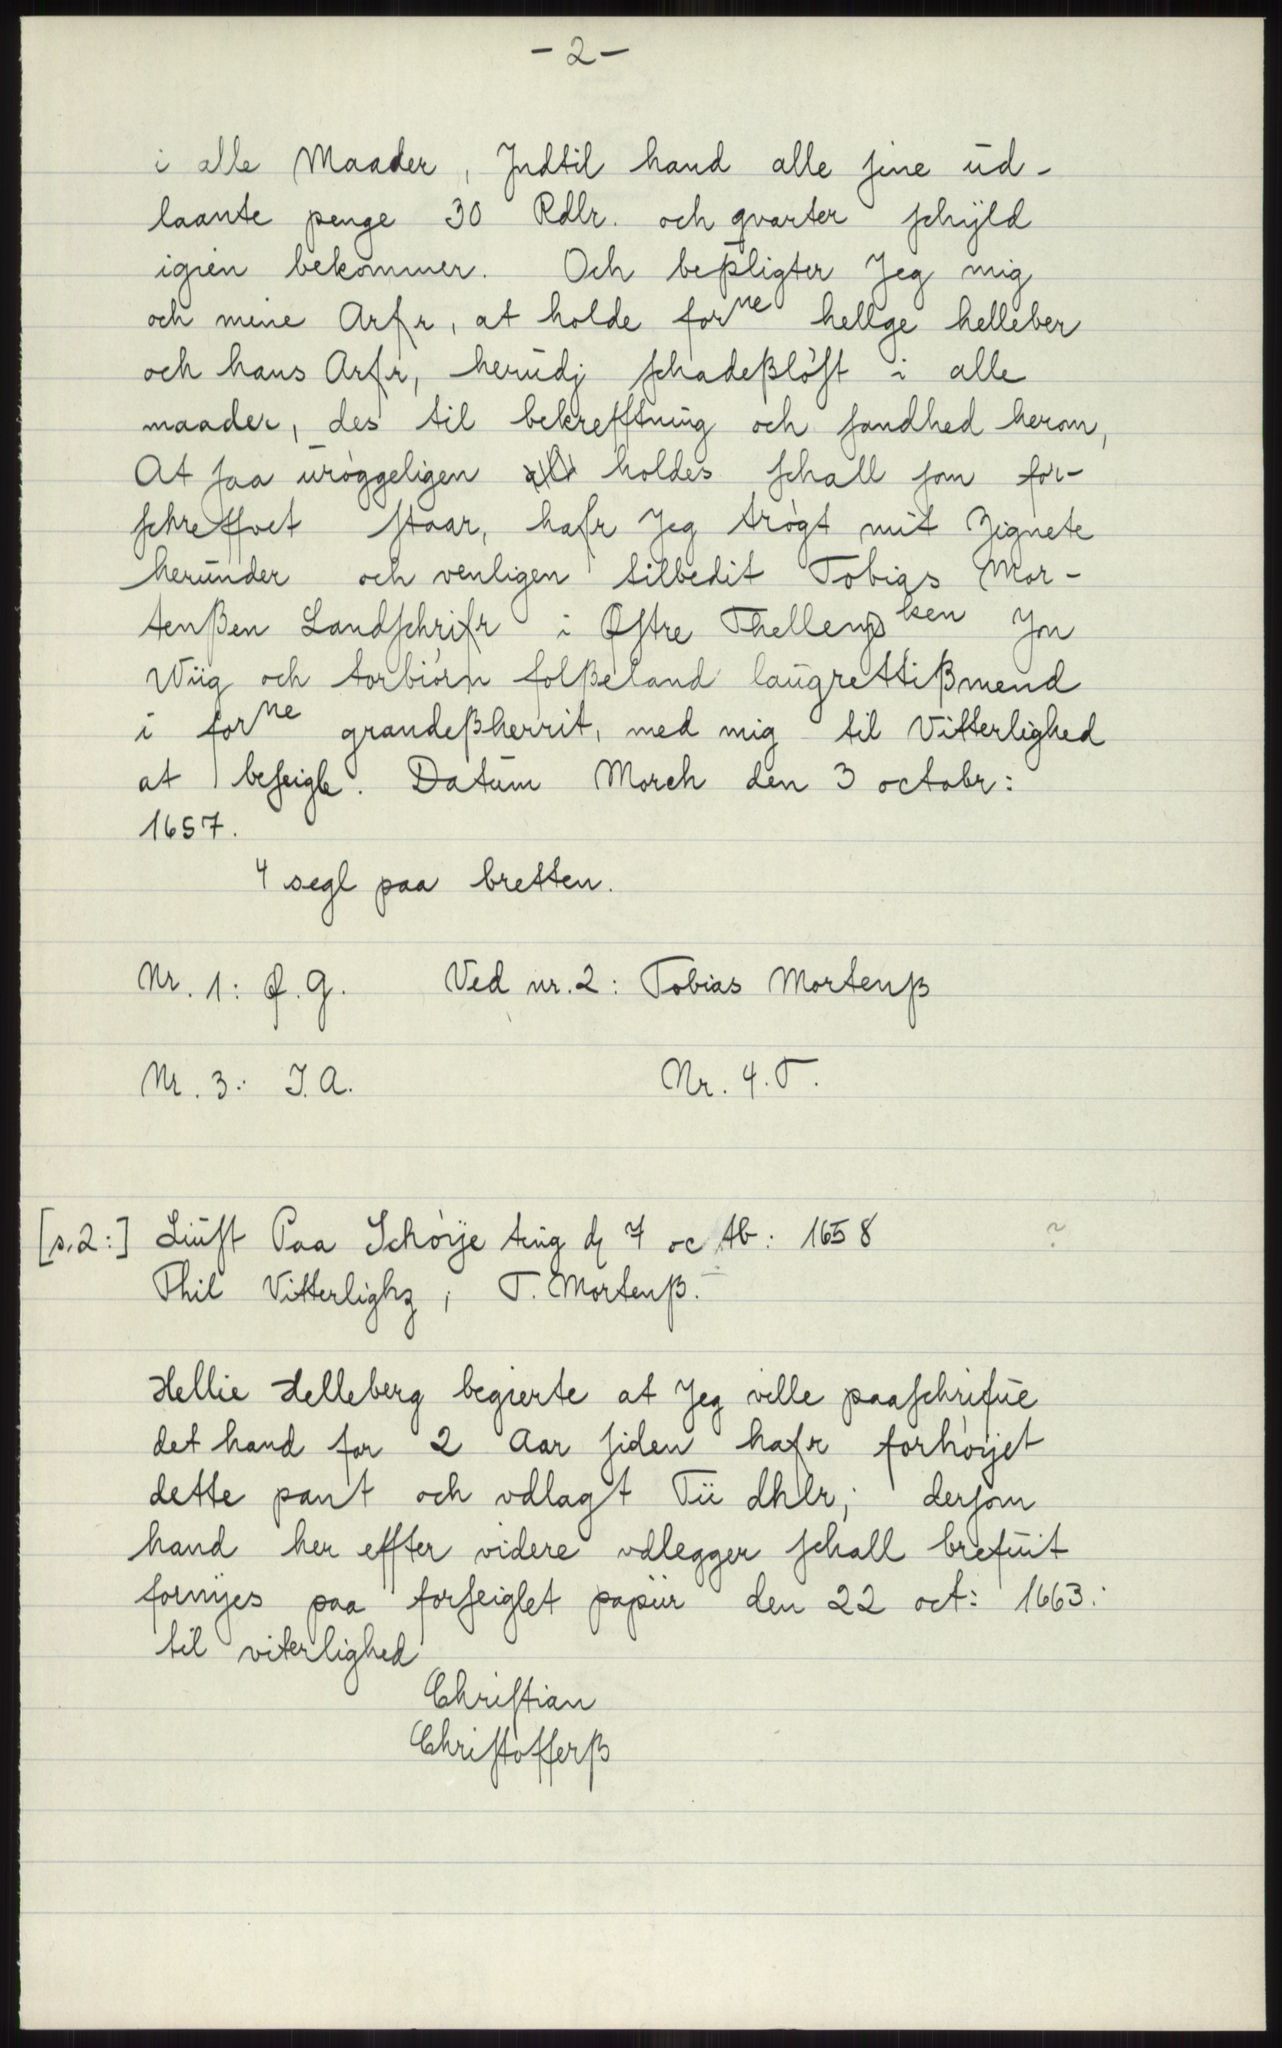 - 2 -
i alle Maader, Jndtil hand alle sine ud-
laante penge 30 Rdlr. och qvarter schÿld
igien bekommer. Och bepligter Jeg mig
och mine Arfr, at holde forne hellge helleber
och hans Arfr, herudj schadeßløst i alle
maader, des til bekrefftning och sandhed herom,
At saa uroggeligen holdes schall som for-
schreffvet staar, hafr Jeg trøgt mit Zignete
herunder och venligen tilbedit Tobias Mor-
tenßen Landschrifr i Østre Thellemarken Jon
Wiig och torbiörn folßeland laugrettißmend
i forne grandeßherrit, med mig til Vitterlighed
at beseigle. Datum Morch den 3 octobr:
1657.
4 segl paa bretten.
Nr. 1: Ø. G. Ved nr. 2: Tobias Mortenß
Nr. 3: J. A. Nr. 4. T.
[s. 2:] Liust Paa Schöÿe ting d 7 octb: 1658 ?
Thil Vitterlighz, T. Mortenß.
Hellie Helleberg begierte at Jeg ville paaschrifue
det hand for 2 Aar siden hafr forhöÿet
dette pant och vdlagt Tii dhlr; dersom
hand her effter videre vdlegger schall brefuit
fornÿes paa forseiglet papiir den 22 oct: 1663:
til viterlighed
Christian
Christofferß